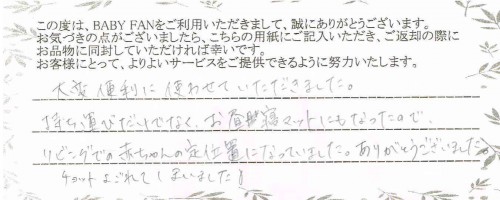 この度は、BABY FANをご利用いただきまして、誠にありがとうございます。
お気づきの点がございましたら、こちらの用紙にご記入いただき、ご返却の際に
お品物に同封していただければ幸いです。
お客様にとって、よりよいサービスをご提供できるように努力いたします。
大変便利に使わせていただきました。
持ち運びだけでなく、お昼寝マットにもなったので、
リビングでの赤ちゃんの定位置になっていました。ありがとうございました。
チョットよごれてしまいました!